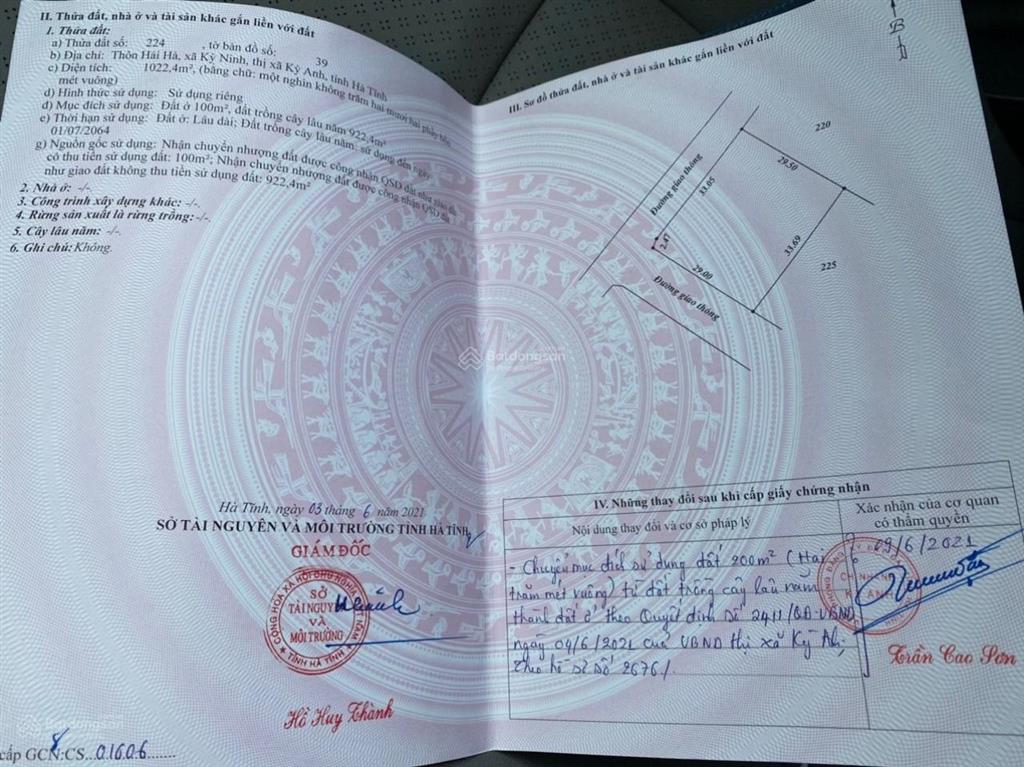 II. Thửa đất, nhà ở và tài sản khác gắn liền với đất
1. Thửa đất:
a) Thửa đất số: 224 , tờ bản đồ số: 39
b) Địa chỉ: Thôn Hải Hà, xã Kỳ Ninh, thị xã Kỳ Anh, tỉnh Hà Tĩnh
c) Diện tích: 1022,4m², (bằng chữ: một nghìn không trăm hai mươi hai phẩy bốn
mét vuông)
d) Hình thức sử dụng: Sử dụng riêng
đ) Mục đích sử dụng: Đất ở 100m², đất trồng cây lâu năm 922,4m²
e) Thời hạn sử dụng: Đất ở: Lâu dài; Đất trồng cây lâu năm: sử dụng đến ngày
01/07/2064
g) Nguồn gốc sử dụng: Nhận chuyển nhượng đất được công nhận QSD đất như giao đất
có thu tiền sử dụng đất: 100m²; Nhận chuyển nhượng đất được công nhận QSD đất
như giao đất không thu tiền sử dụng đất: 922,4m²
2. Nhà ở: -/-.
3. Công trình xây dựng khác: -/-.
4. Rừng sản xuất là rừng trồng:-/-.
5. Cây lâu năm: -/-.
6. Ghi chú: Không.
Hà Tĩnh, ngày 03 tháng 6 năm 2021
SỞ TÀI NGUYÊN VÀ MÔI TRƯỜNG TỈNH HÀ TĨNH
GIÁM ĐỐC
CỘNG HÒA XÃ HỘI CHỦ NGHĨA VIỆT NAM
SỞ
TÀI NGUYÊN
VÀ
MÔI TRƯỜNG
TỈNH HÀ TĨNH
Hồ Huy Thành
cấp GCN:CS...01606.......
III. Sơ đồ thửa đất, nhà ở và tài sản khác gắn liền với đất
B
220
29.50
Đường giao thông
33.05
2.47
33.69
225
29.00
Đường giao thông
Batdongsan
IV. Những thay đổi sau khi cấp giấy chứng nhận
Nội dung thay đổi và cơ sở pháp lý
Xác nhận của cơ quan
có thẩm quyền
- Chuyển mục đích sử dụng đất 200m² (Hai
trăm mét vuông) từ đất trồng cây lâu năm
thành đất ở theo Quyết định số 2411/QĐ-UBND
ngày 04/6/2021 của UBND thị xã Kỳ Anh,
theo hồ sơ số 2676./.
09/6/2021
CHI NHÁNH
Trần Cao Sơn
Batdongsan